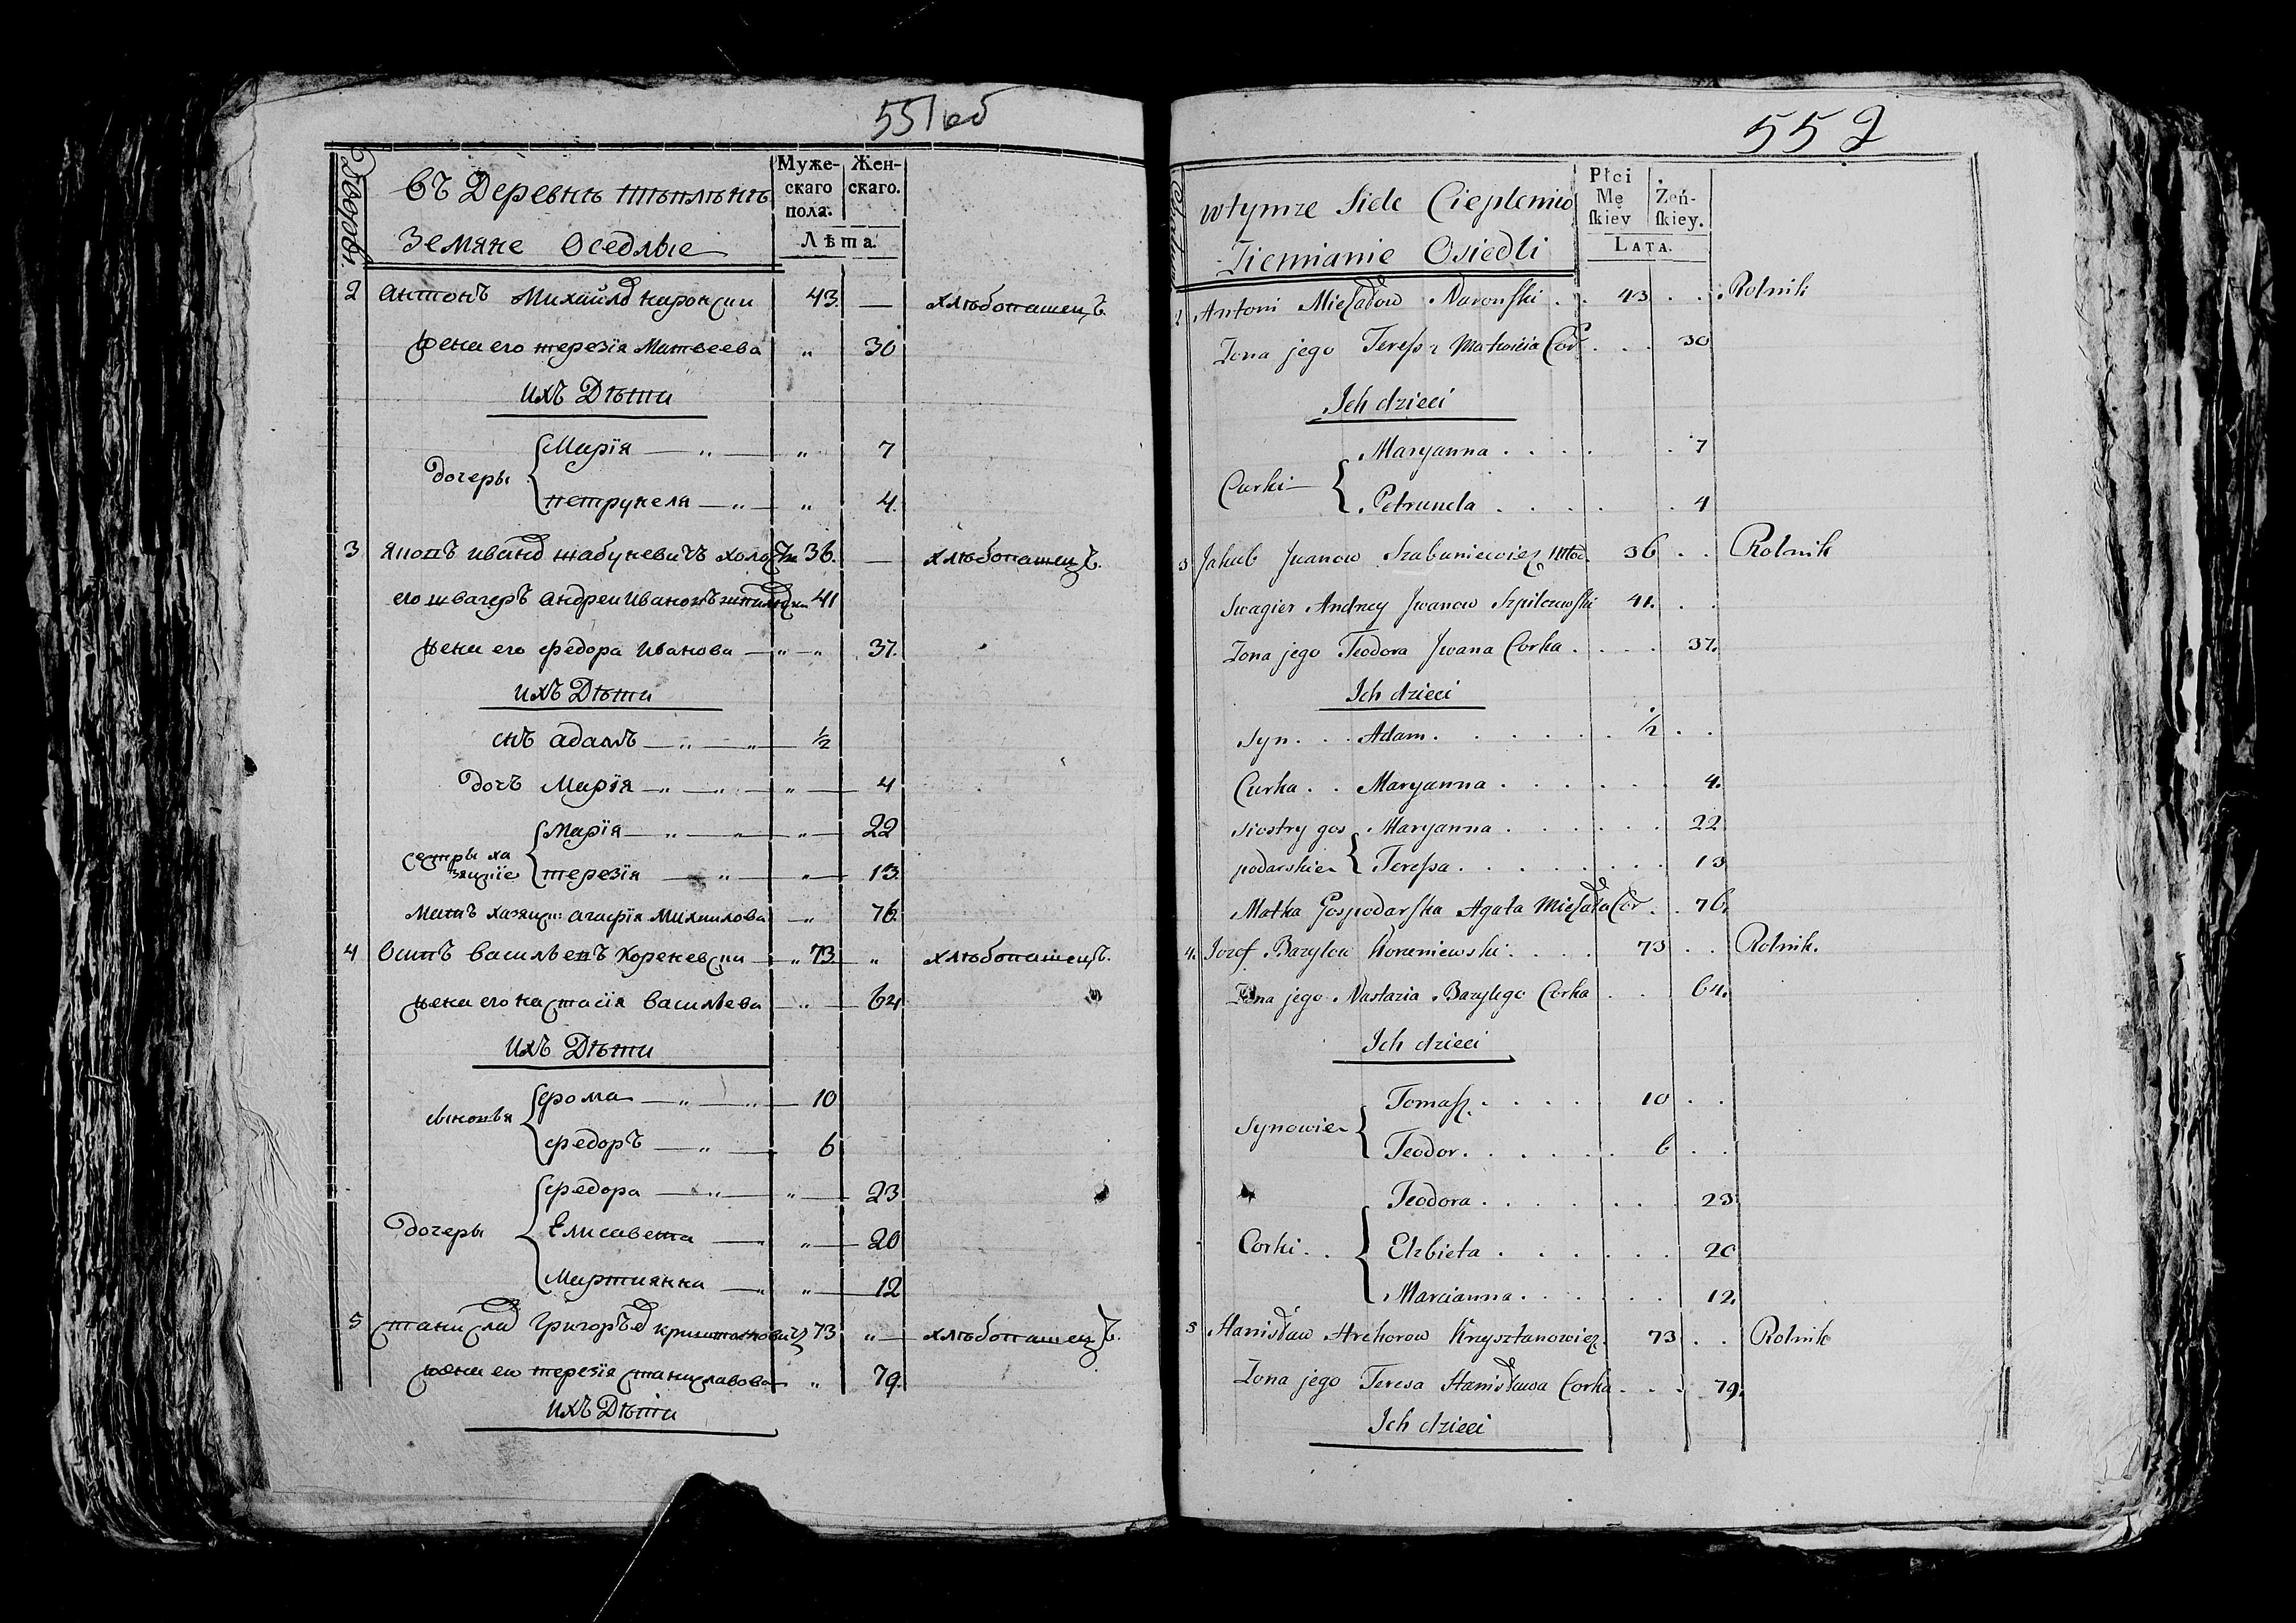 551 об
Дворовъ.
Въ Деревнѣ Тѣплѣнѣ
Земяне Оседлые
Муже-
скаго
пола.
Жен-
скаго.
Лѣта.
2 Антонъ Михайлов Наронски 43. — хлѣбопашецъ.
жена его Терезія Матвеева „ 30
ихъ Дѣти
Дочеры
Марія — „ — „ 7
Петрунеля — „ — „ 4.
3 Якопъ Иванов Шабуневичъ холост 36. — хлѣбопашецъ.
его швагеръ Андреи Ивановъ 41
жена его Федора Иванова — „ — „ 37.
ихъ Дѣти
снъ Адамъ — „ — „ — ½
дочъ Марія — „ — „ — „ — 4
Сестры ха
зяискіе
Марія — „ — „ — „ — 22
Терезія — „ — „ — 13
Мать хазяиск: Агафія Михаилова — „ 76
4 Осипъ Васильевъ Кореневски — „ 73 „ хлѣбопашецъ.
жена его Настасія Васильева — „ — 64
Ихъ Дѣти
сыновья
Фрома — „ — „ — 10
Федоръ — „ — 6
Дочеры
Федора — „ — „ — 23
Елисавета — „ — 20
Мартиянна — „ „ — 12
5 Станислав Григоръев Криштановичъ 73 „ — хлѣбопашецъ.
жена ево Терезія Станиславова — „ 79.
Ихъ Дѣти
552
wtymże Siele Cieplenie
Ziemianie Osiedli
Płci
Mę
skiey
Żeń-
skiey.
LATA.
Antoni Michałow Naronski . . 43 . . Rolnik
Zona jego Teressa Mateusza Cor . . . 30
Ich dzieci
Curki
Maryanna . . . . . 7
Petrunela . . . . . . 4
3 Jakub Iwanow Szabuniewicz Młod. 36 . . Rolnik
Swagier Andrzey Iwanow Szpilczewski 41. . .
Zona jego Teodora Iwana Corka . . . . 37.
Ich dzieci
Syn . . . Adam . . . . . . . ½ . .
Curka . . Maryanna . . . . . . 4.
Siostry gos
podarskie
Maryanna . . . . . . 22
Teressa . . . . . . . . 13
Matka Gospodarska Agata Michała Cor . . 76.
4. Jozef Bazylow Koreniewski . . . . 73 . . Rolnik.
Zona jego Nastazia Bazylego Corka . . . 64.
Ich dzieci
Synowie
Tomasz . . . . . 10 . .
Teodor . . . . . . 6 . .
Corki . .
Teodora . . . . . . . 23
Elzbieta . . . . . . 20
Marcianna . . . . . . 12.
5 Stanisław Hrehorow Krysztanowicz . 73 . . Rolnik
Zona jego Teresa Stanisława Corka . . . 79.
Ich dzieci